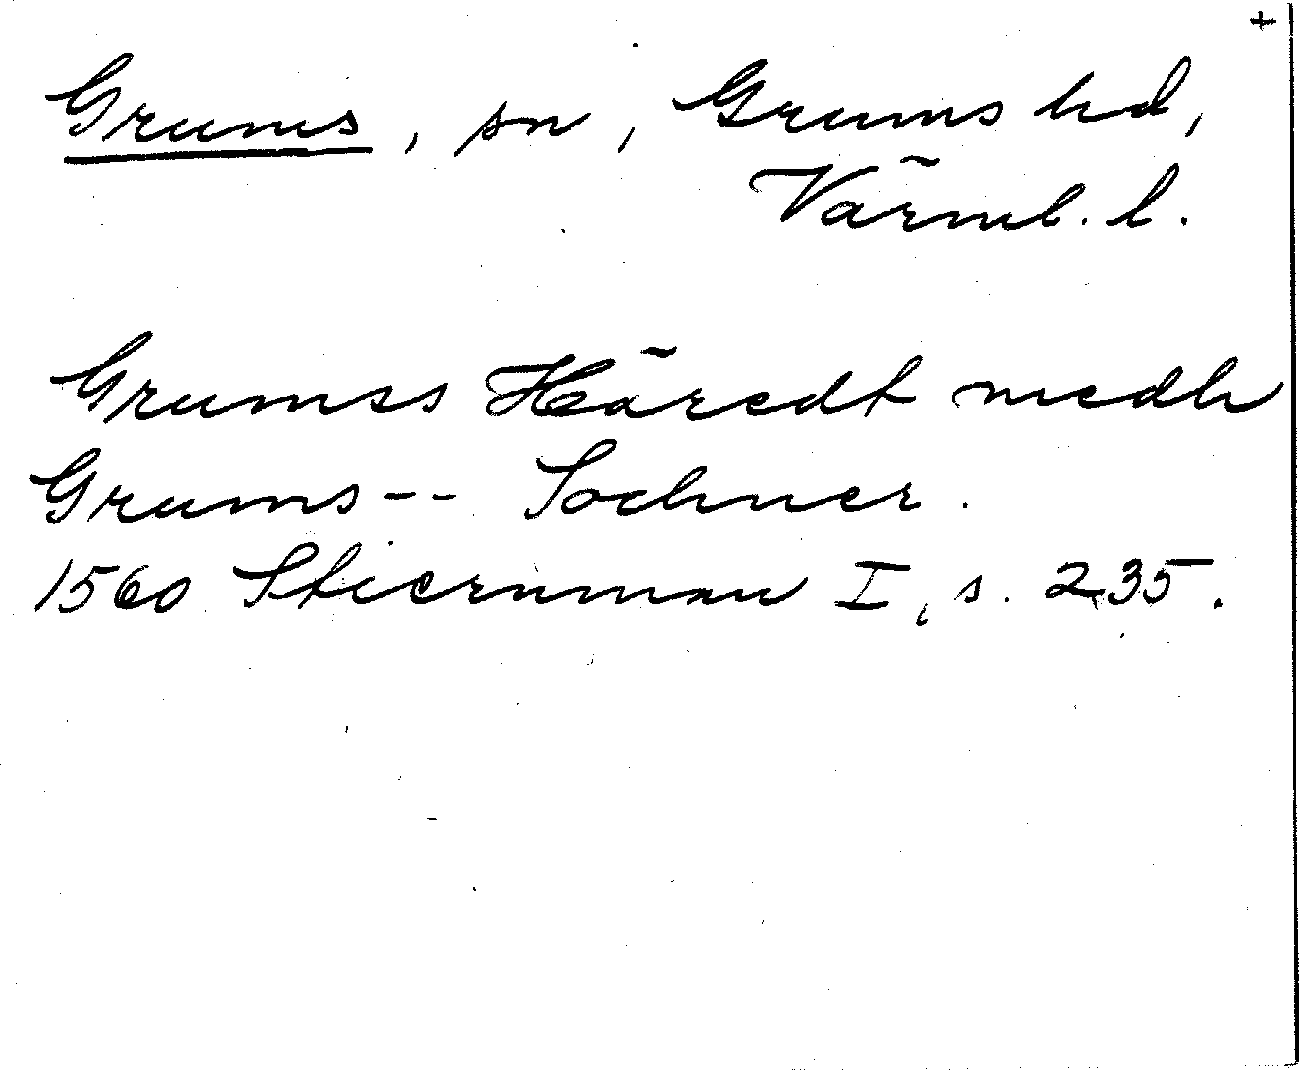 +
Grums, sn, Grums hd,
Värml. l.
Grumss Häredt medh
Grums-- Sochner.
1560 Stiernman I, s. 235.